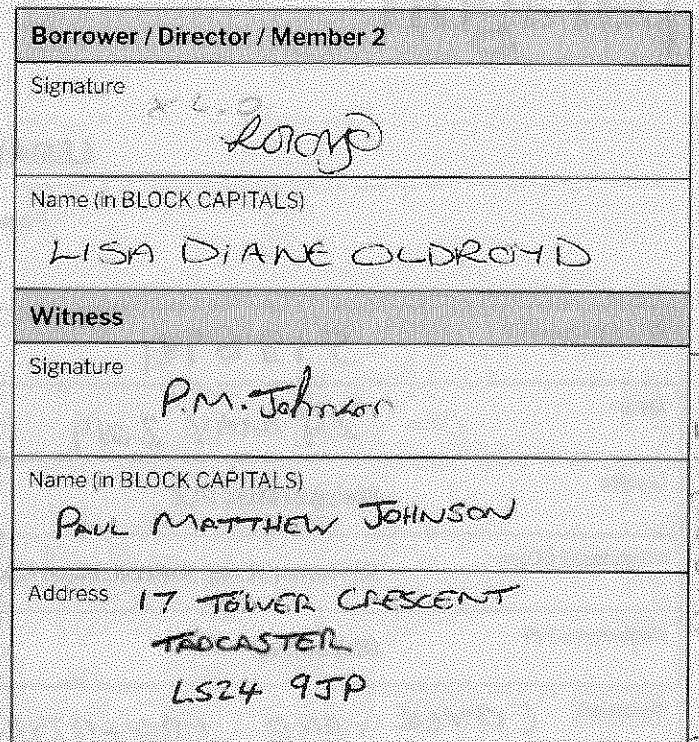 Borrower / Director / Member 2
Signature
Name (in BLOCK CAPITALS)
LISA DIANE OLDROYD
Witness
Signature
P.M. Johnson
Name (in BLOCK CAPITALS)
PAUL MATTHEW JOHNSON
Address 17 TOWER CRESCENT
TADCASTER
LS24 9JP